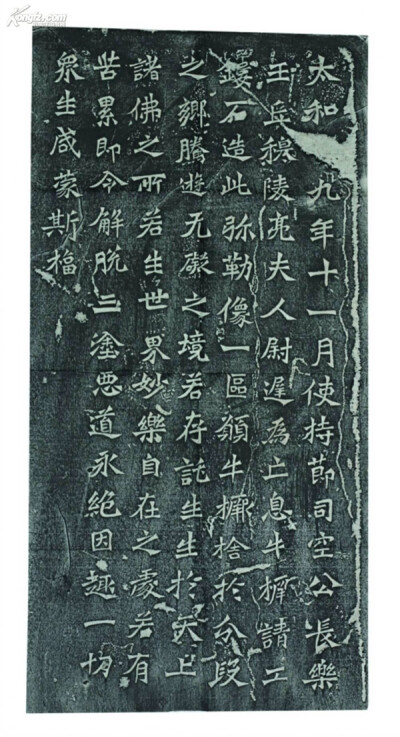 Kongfz.com
太和 九年十一月使持節司空公長樂
王丘穆陵亮夫人尉遲為亡息牛橛請工
鏤石造此弥勒像一區願牛橛捨於分段
之鄉騰遊无礙之境若存託生生於天上
諸佛之所若生世界妙樂自在之處若有
苦累即令解脫三塗惡道永絕因趣一切
眾生咸蒙斯福